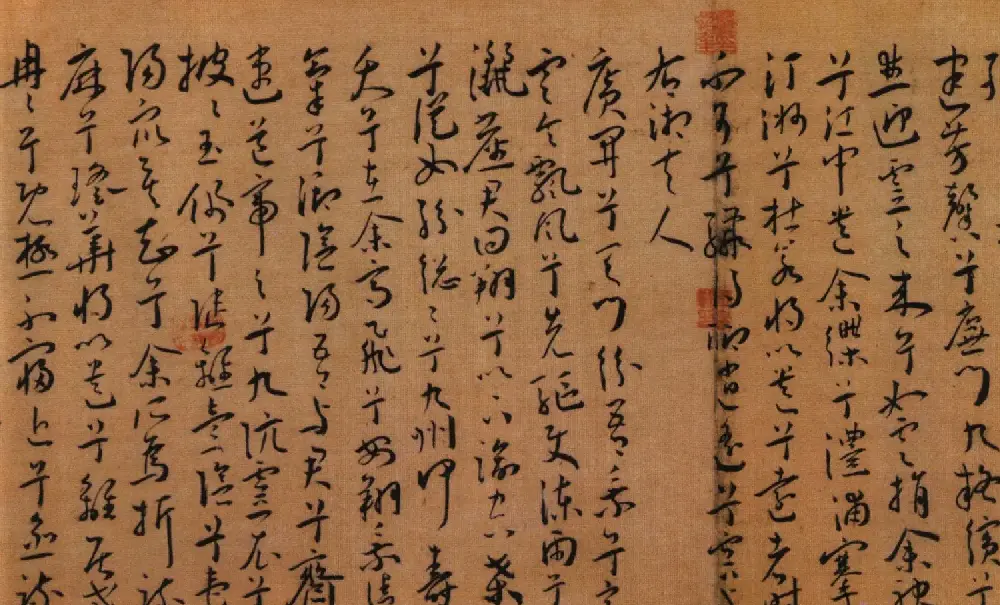 建芳馨兮廡門九嶷繽兮
並迎靈之來兮如雲捐余袂
兮江中遺余褋兮澧浦搴
汀洲兮杜若將以遺兮遠者時
不可兮驟得聊逍遙兮容
右湘夫人
廣開兮天門紛吾乘兮玄
雲令飄風兮先驅使涷雨兮
灑塵君回翔兮以下踰空桑
兮從女紛總總兮九州何壽
夭兮在余高飛兮安翔乘清
氣兮御陰陽吾與君兮齋
速道帝之兮九坑靈衣兮
披披玉佩兮陸離壹陰兮壹
陽眾莫知兮余所為折疏
麻兮瑤華將以遺兮離居老
冉冉兮既極不寖近兮愈疏